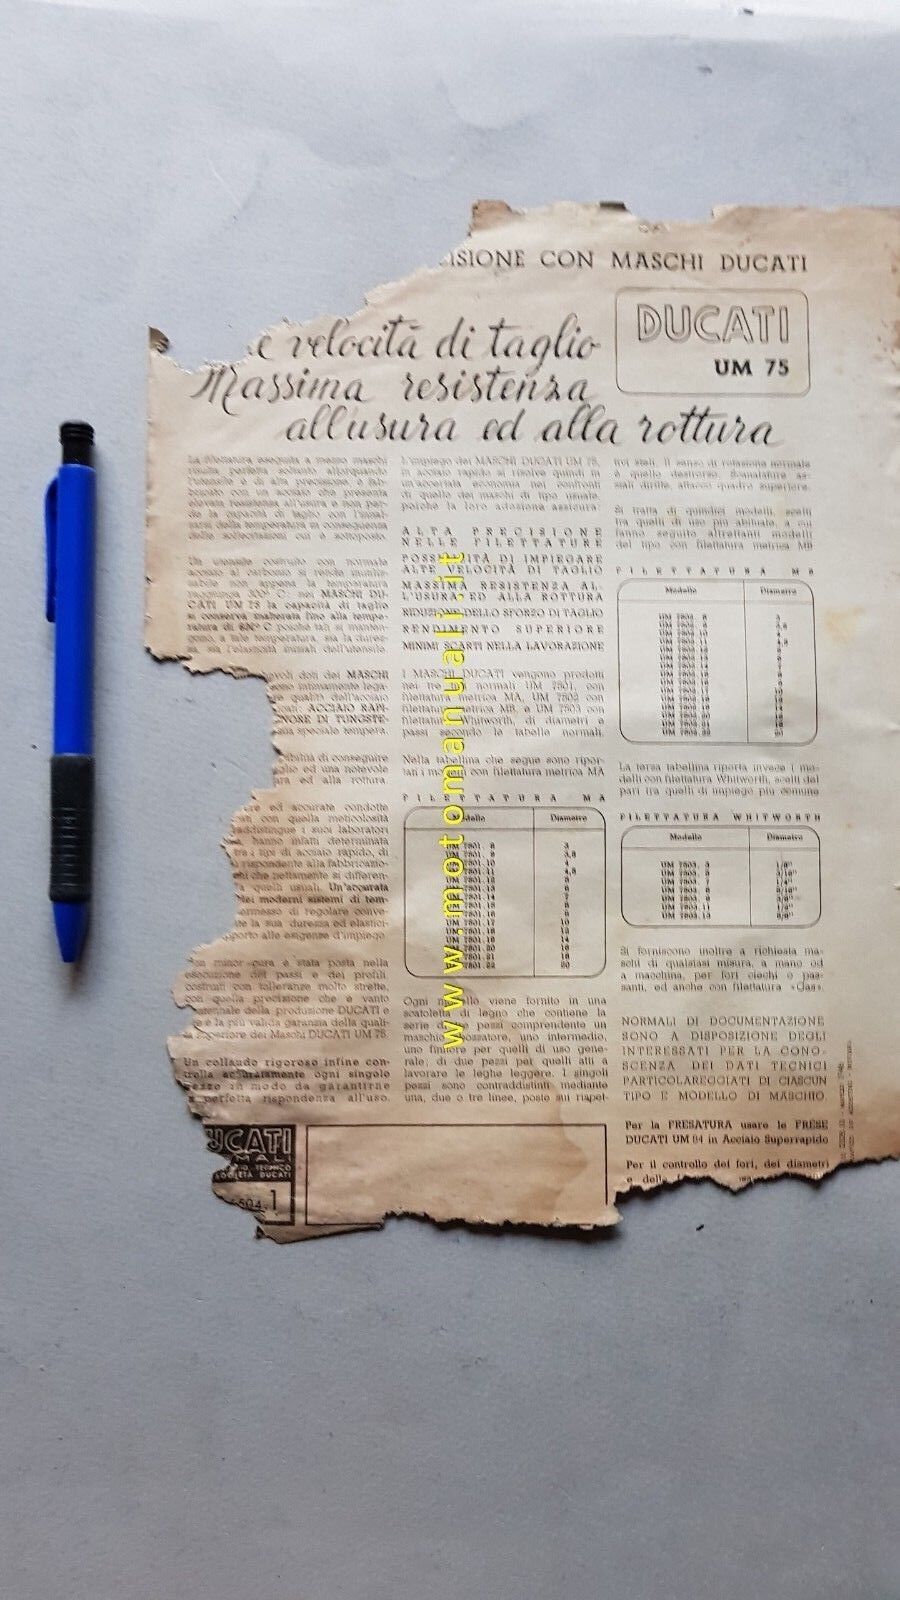 ISIONE CON MASCHI DUCATI
DUCATI
UM 75
e velocità di taglio
Massima resistenza
all'usura ed alla rottura
La filettatura eseguita a mezzo maschi
risulta perfetta soltanto allorquando
l'utensile è di alta precisione, è fab-
bricato con un acciaio che presenta
elevata resistenza all'usura e non per-
de la capacità di taglio con l'innal-
zarsi della temperatura in conseguenza
delle sollecitazioni cui è sottoposto.
Un utensile costruito con normale
acciaio al carbonio si rende inutili-
zabile non appena la temperatura
raggiunga 300° C: nei MASCHI DU-
CATI UM 75 la capacità di taglio
si conserva inalterata fino alla tempe-
ratura di C poichè tali si manten-
gono, a tale temperatura, sia la durez-
za sia l'elasticità iniziali dell'utensile.
voli doti dei MASCHI
ono intimamente lega-
qualità dell'acciaio
ACCIAIO RAPI-
NORE DI TUNGSTE-
speciale tempera.
bilità di conseguire
glio ed una notevole
ra ed alla rottura.
ed accurate condotte
con quella meticolosità
addistingue i suoi laboratori
hanno infatti determinata
tra i tipi di acciaio rapido, di
rispondente alla fabbricazio-
hi che nettamente si differen-
a quelli usuali. Un'accurata
dei moderni sistemi di tem-
ermesso di regolare conve-
te la sua durezza ed elastici-
pporto alle esigenze d'impiego.
Non minor cura è stata posta nella
esecuzione dei passi e dei profili,
costruiti con tolleranze molto strette,
con quella precisione che è vanto
della produzione DUCATI e
è la più valida garanzia della quali-
superiore dei Maschi DUCATI UM 75.
Un collaudo rigoroso infine con-
trolla accuratamente ogni singolo
pezzo in modo da garantirne
a perfetta rispondenza all'uso.
L'impiego dei MASCHI DUCATI UM 75,
in acciaio rapido si risolve quindi in
un'accertata economia nei confronti
di quello dei maschi di tipo usuale,
perchè la loro adozione assicura:
ALTA PRECISIONE
NELLE FILETTATURE
POSSIBILITÀ DI IMPIEGARE
ALTE VELOCITÀ DI TAGLIO
MASSIMA RESISTENZA AL-
L'USURA ED ALLA ROTTURA
RIDUZIONE DELLO SFORZO DI TAGLIO
RENDIMENTO SUPERIORE
MINIMI SCARTI NELLA LAVORAZIONE
I MASCHI DUCATI vengono prodotti
nei tre tipi normali UM 7501, con
filettatura metrica MA, UM 7502 con
filettatura metrica MB, e UM 7503 con
filettatura Whitworth, di diametri e
passi secondo le tabelle normali.
Nella tabellina che segue sono ripor-
tati i modelli con filettatura metrica MA
FILETTATURA MA
Modello Diametro
UM 7501. 8 3
UM 7501. 9 3,5
UM 7501.10 4
UM 7501.11 4,5
UM 7501.12 5
UM 7501.13 6
UM 7501.14 7
UM 7501.15 8
UM 7501.16 9
UM 7501.17 10
UM 7501.18 12
UM 7501.19 14
UM 7501.20 16
UM 7501.21 18
UM 7501.22 20
Ogni modello viene fornito in una
scatoletta di legno che contiene la
serie di tre pezzi comprendente un
maschio sgrossatore, uno intermedio,
uno finitore per quelli di uso gene-
rale; di due pezzi per quelli atti a
lavorare le leghe leggere. I singoli
pezzi sono contraddistinti mediante
una, due o tre linee, poste sui rispet-
tivi steli. Il senso di rotazione normale
è quello destrorso. Scanalature as-
siali diritte, attacco quadro superiore.
Si tratta di quindici modelli, scelti
tra quelli di uso più abituale, a cui
fanno seguito altrettanti modelli
del tipo con filettatura metrica MB
FILETTATURA MB
Modello Diametro
La terza tabellina riporta invece i mo-
delli con filettatura Whitworth, scelti del
pari tra quelli di impiego più comune
FILETTATURA WHITWORTH
Modello Diametro
UM 7503. 3 1/8"
UM 7503. 5 3/16"
UM 7503. 7 1/4"
UM 7503. 8 5/16"
UM 7503. 9 3/8"
UM 7503.11 1/2"
UM 7503.13 5/8"
Si forniscono inoltre a richiesta ma-
schi di qualsiasi misura, a mano od
a macchina, per fori ciechi o pas-
santi, ed anche con filettatura «Gas».
NORMALI DI DOCUMENTAZIONE
SONO A DISPOSIZIONE DEGLI
INTERESSATI PER LA CONO-
SCENZA DEI DATI TECNICI
PARTICOLAREGGIATI DI CIASCUN
TIPO E MODELLO DI MASCHIO.
Per la FRESATURA usare le FRESE
DUCATI UM 64 in Acciaio Superrapido
Per il controllo dei fori, dei diametri
e delle
UCATI
MALI
TECNICO
SOCIETÀ DUCATI
1
www.motomanuali.it